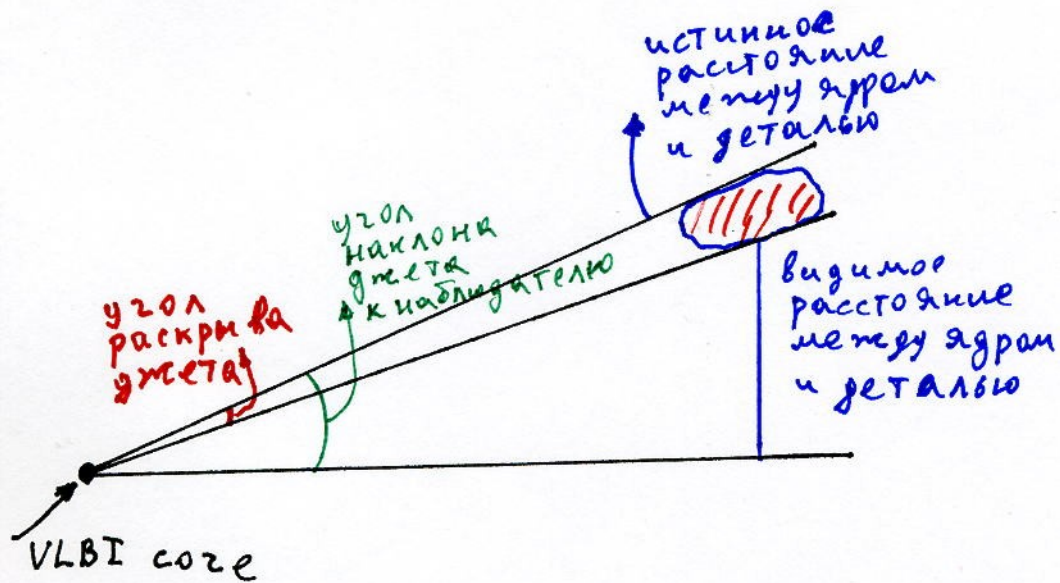 истинное
расстояние
между ядром
и деталью
угол
наклона
джета
к наблюдателю
угол
раскрыва
джета
видимое
расстояние
между ядром
и деталью
VLBI core